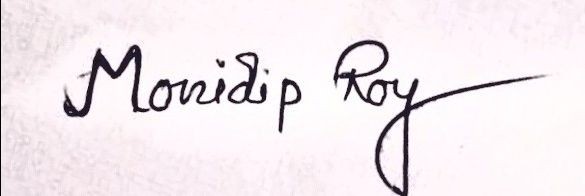 Monidip Roy